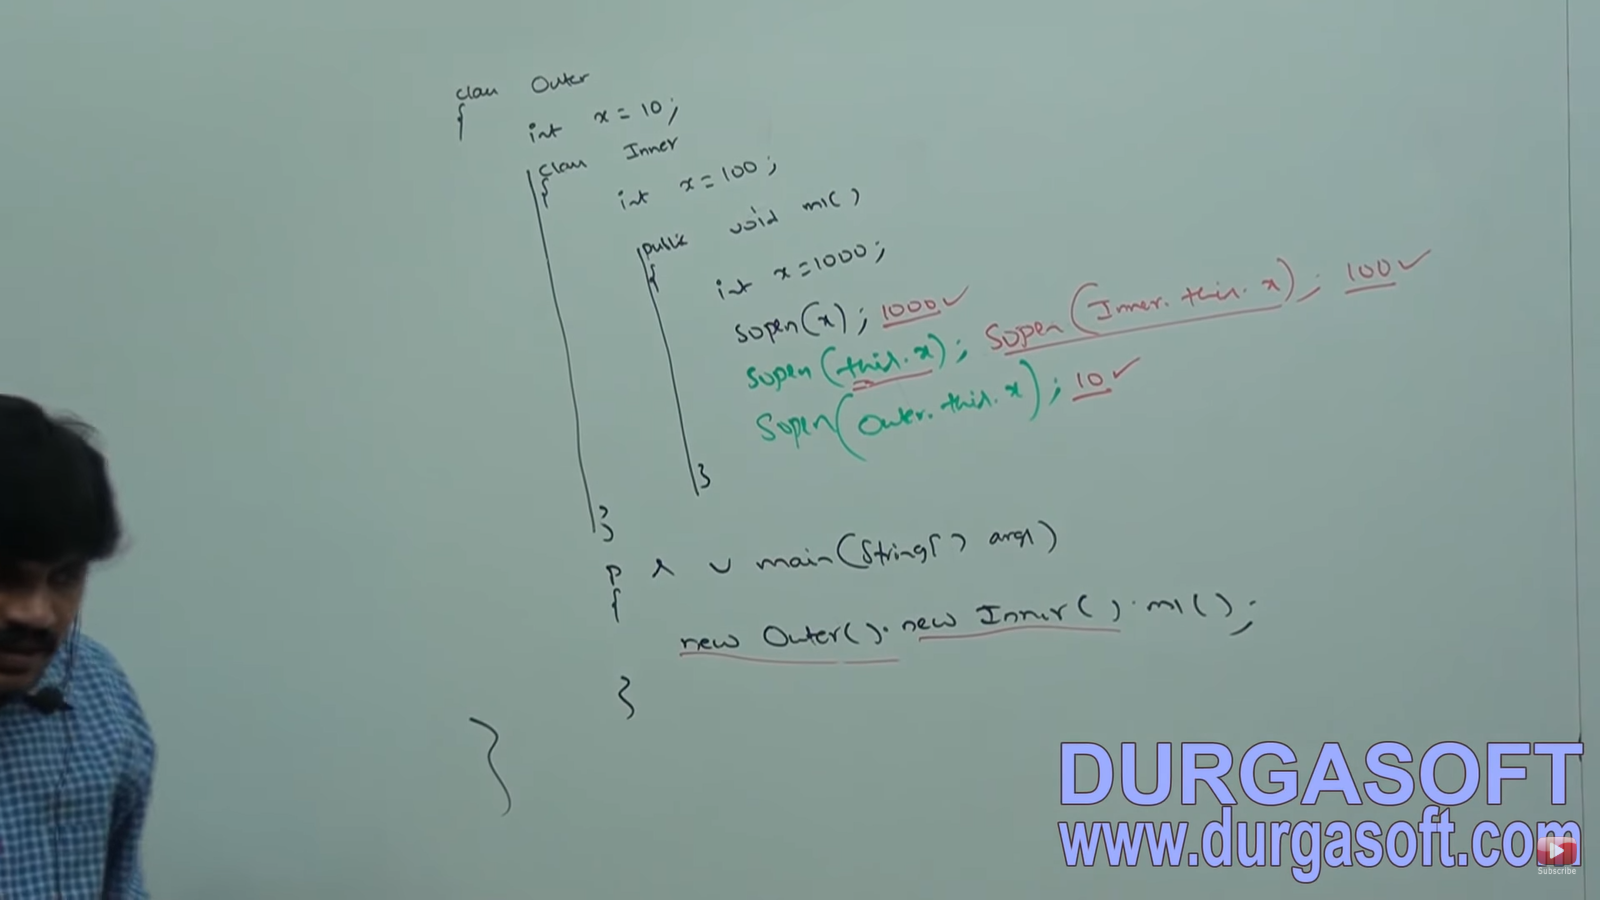 class Outer
{
int x = 10;
class Inner
{
int x = 100;
public void m1()
{
int x = 1000;
sopen(x); 1000✓
sopen(this.x); sopen(Inner.this.x); 100✓
sopen(Outer.this.x); 10✓
}
}
p s v main(String[] args)
{
new Outer().new Inner().m1();
}
}
DURGASOFT
www.durgasoft.com
Subscribe